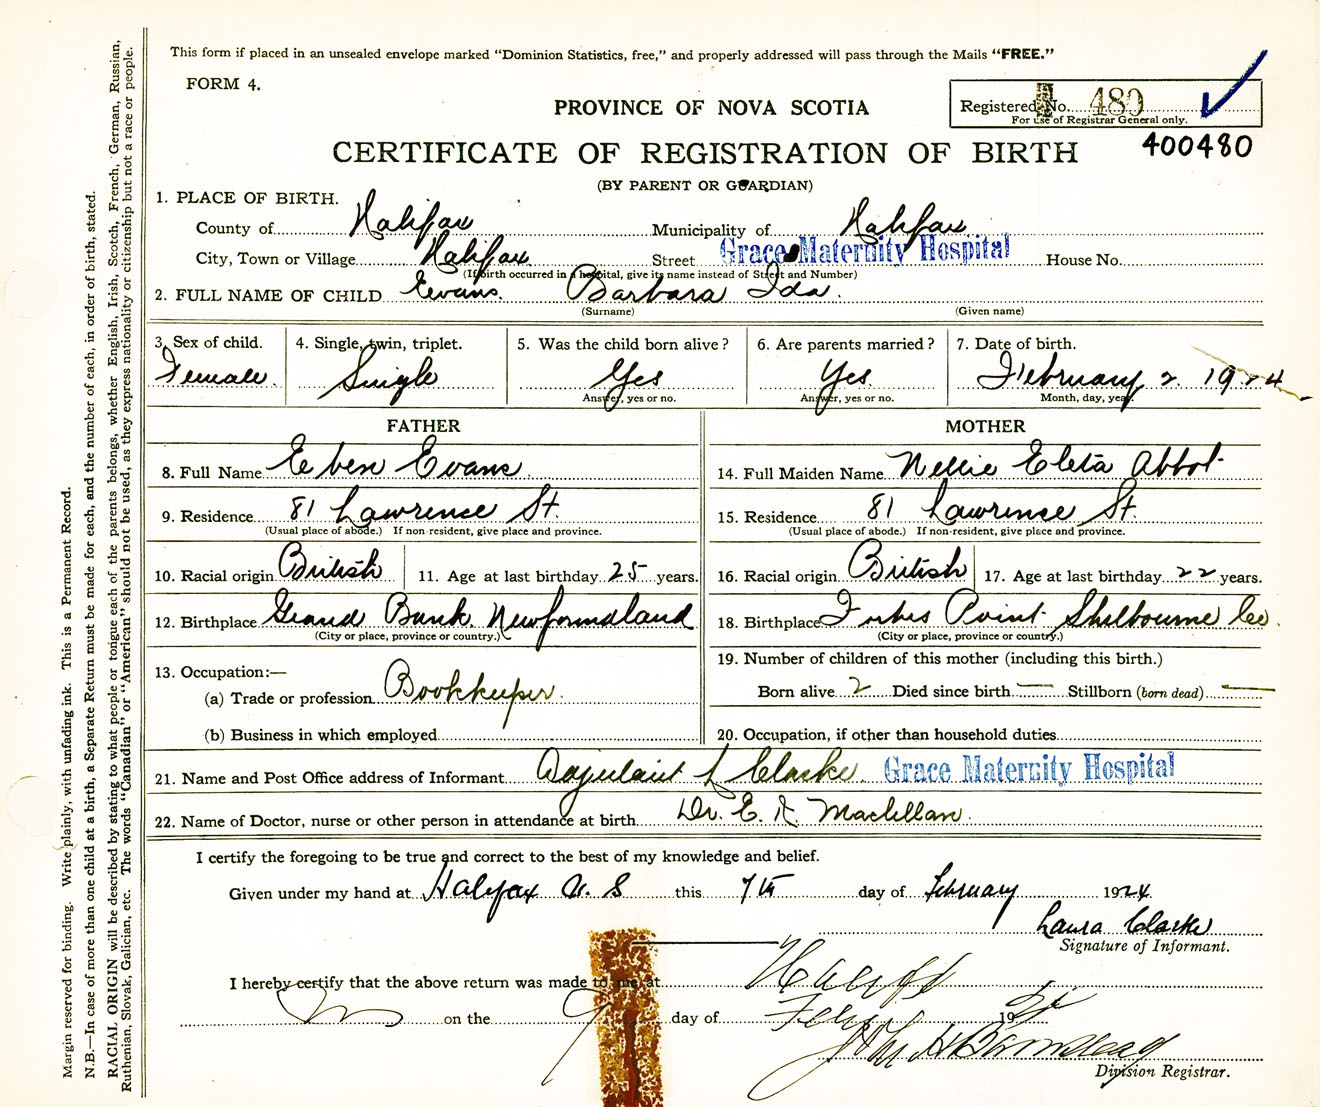 This form if placed in an unsealed envelope marked "Dominion Statistics, free," and properly addressed will pass through the Mails "FREE."
FORM 4.
Registered No. 480
For use of Registrar General only.
PROVINCE OF NOVA SCOTIA
400480
CERTIFICATE OF REGISTRATION OF BIRTH
(BY PARENT OR GUARDIAN)
1. PLACE OF BIRTH.
County of Halifax Municipality of Halifax
City, Town or Village Halifax Street Grace Maternity Hospital House No.
(If birth occurred in a hospital, give its name instead of Street and Number)
2. FULL NAME OF CHILD Evans. Barbara Ida.
(Surname) (Given name)
3. Sex of child. 4. Single, twin, triplet. 5. Was the child born alive? 6. Are parents married? 7. Date of birth.
Female. Single Yes Yes February 2 1924
Answer, yes or no. Answer, yes or no. Month, day, year.
FATHER
8. Full Name Eben Evans.
9. Residence 81 Lawrence St.
(Usual place of abode.) If non-resident, give place and province.
10. Racial origin British 11. Age at last birthday 25 years.
12. Birthplace Grand Bank. Newfoundland
(City or place, province or country.)
13. Occupation:—
(a) Trade or profession Bookkeeper.
(b) Business in which employed
MOTHER
14. Full Maiden Name Nellie Eleta Abbot
15. Residence 81 Lawrence St.
(Usual place of abode.) If non-resident, give place and province.
16. Racial origin British 17. Age at last birthday 22 years.
18. Birthplace Forbes Point Shelbourne Co.
(City or place, province or country.)
19. Number of children of this mother (including this birth.)
Born alive 2 Died since birth — Stillborn (born dead) —
20. Occupation, if other than household duties
21. Name and Post Office address of Informant Adjutant L Clarke. Grace Maternity Hospital
22. Name of Doctor, nurse or other person in attendance at birth Dr. E. K Maclellan.
I certify the foregoing to be true and correct to the best of my knowledge and belief.
Given under my hand at Halifax N. S this 7th day of February 1924
Laura Clarke
Signature of Informant.
I hereby certify that the above return was made to me at Halifax
on the day of Feby 19
Division Registrar.
Margin reserved for binding. Write plainly, with unfading ink. This is a Permanent Record.
N.B.—In case of more than one child at a birth, a Separate Return must be made for each, and the number of each, in order of birth, stated.
RACIAL ORIGIN will be described by stating to what people or tongue each of the parents belongs, whether English, Irish, Scotch, French, German, Russian,
Ruthenian, Slovak, Galician, etc. The words "Canadian" or "American" should not be used, as they express nationality or citizenship but not a race or people.